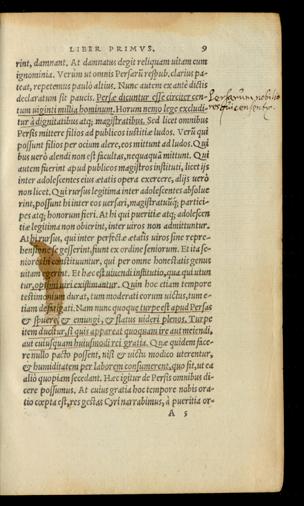 LIBER PRIMVS. 9
rint, damnant. At damnatus degit reliquam uitam cum
ignominia. Verùm ut omnis Persarũ respub. clarius pa-
teat, repetemus paulò altius. Nunc autem ex antè dictis
declaratum sit paucis. Persæ dicuntur esse circiter cen-
tum uiginti millia hominum. Horum nemo lege excludi-
tur à dignitatibus atq; magistratibus. Sed licet omnibus
Persis mittere filios ad publicos iustitiæ ludos. Verũ qui
possunt filios per ocium alere, eos mittunt ad ludos. Qui
bus uerò alendi non est facultas, nequaquã mittunt. Qui
autem fuerint apud publicos magistros instituti, licet ijs
inter adolescentes eius ætatis opera exercere, alijs uerò
non licet. Qui rursus legitima inter adolescentes absolue
rint, possunt hi inter eos uersari, magistratuũq; partici-
pes atq; honorum fieri. At hi qui pueritiæ atq; adolescen
tiæ legitima non obierint, inter uiros non admittuntur.
At hi rursus, qui inter perfectæ ætatis uiros sine repre-
hensione se gesserint, fiunt ex ordine seniorum. Et ita se-
niores hi constituuntur, qui per omne honestatis genus
uitam egerint. Et hæc est uiuendi institutio, qua qui utun
tur, optimi uiri existimantur. Quin hoc etiam tempore
testimonium durat, tum moderati eorum uictus, tum e-
tiam Nam nunc quoque turpe est apud Persas
& spuere & emungi, & flatus uideri plenos. Turpe
item ducitur, si quis appareat quoquam ire aut meiendi,
aut cuiusquam huiusmodi rei gratia. Quæ quidem face-
re nullo pacto possent, nisi & uictu modico uterentur,
& humiditatem per laborem consumerent, quo fit, ut ea
aliò quopiam secedant. Hæc igitur de Persis omnibus di-
cere possumus. At cuius gratia hoc tempore nobis ora-
tio cœpta est, res gestas Cyri narrabimus, à pueritia or-
A 5
Persarum